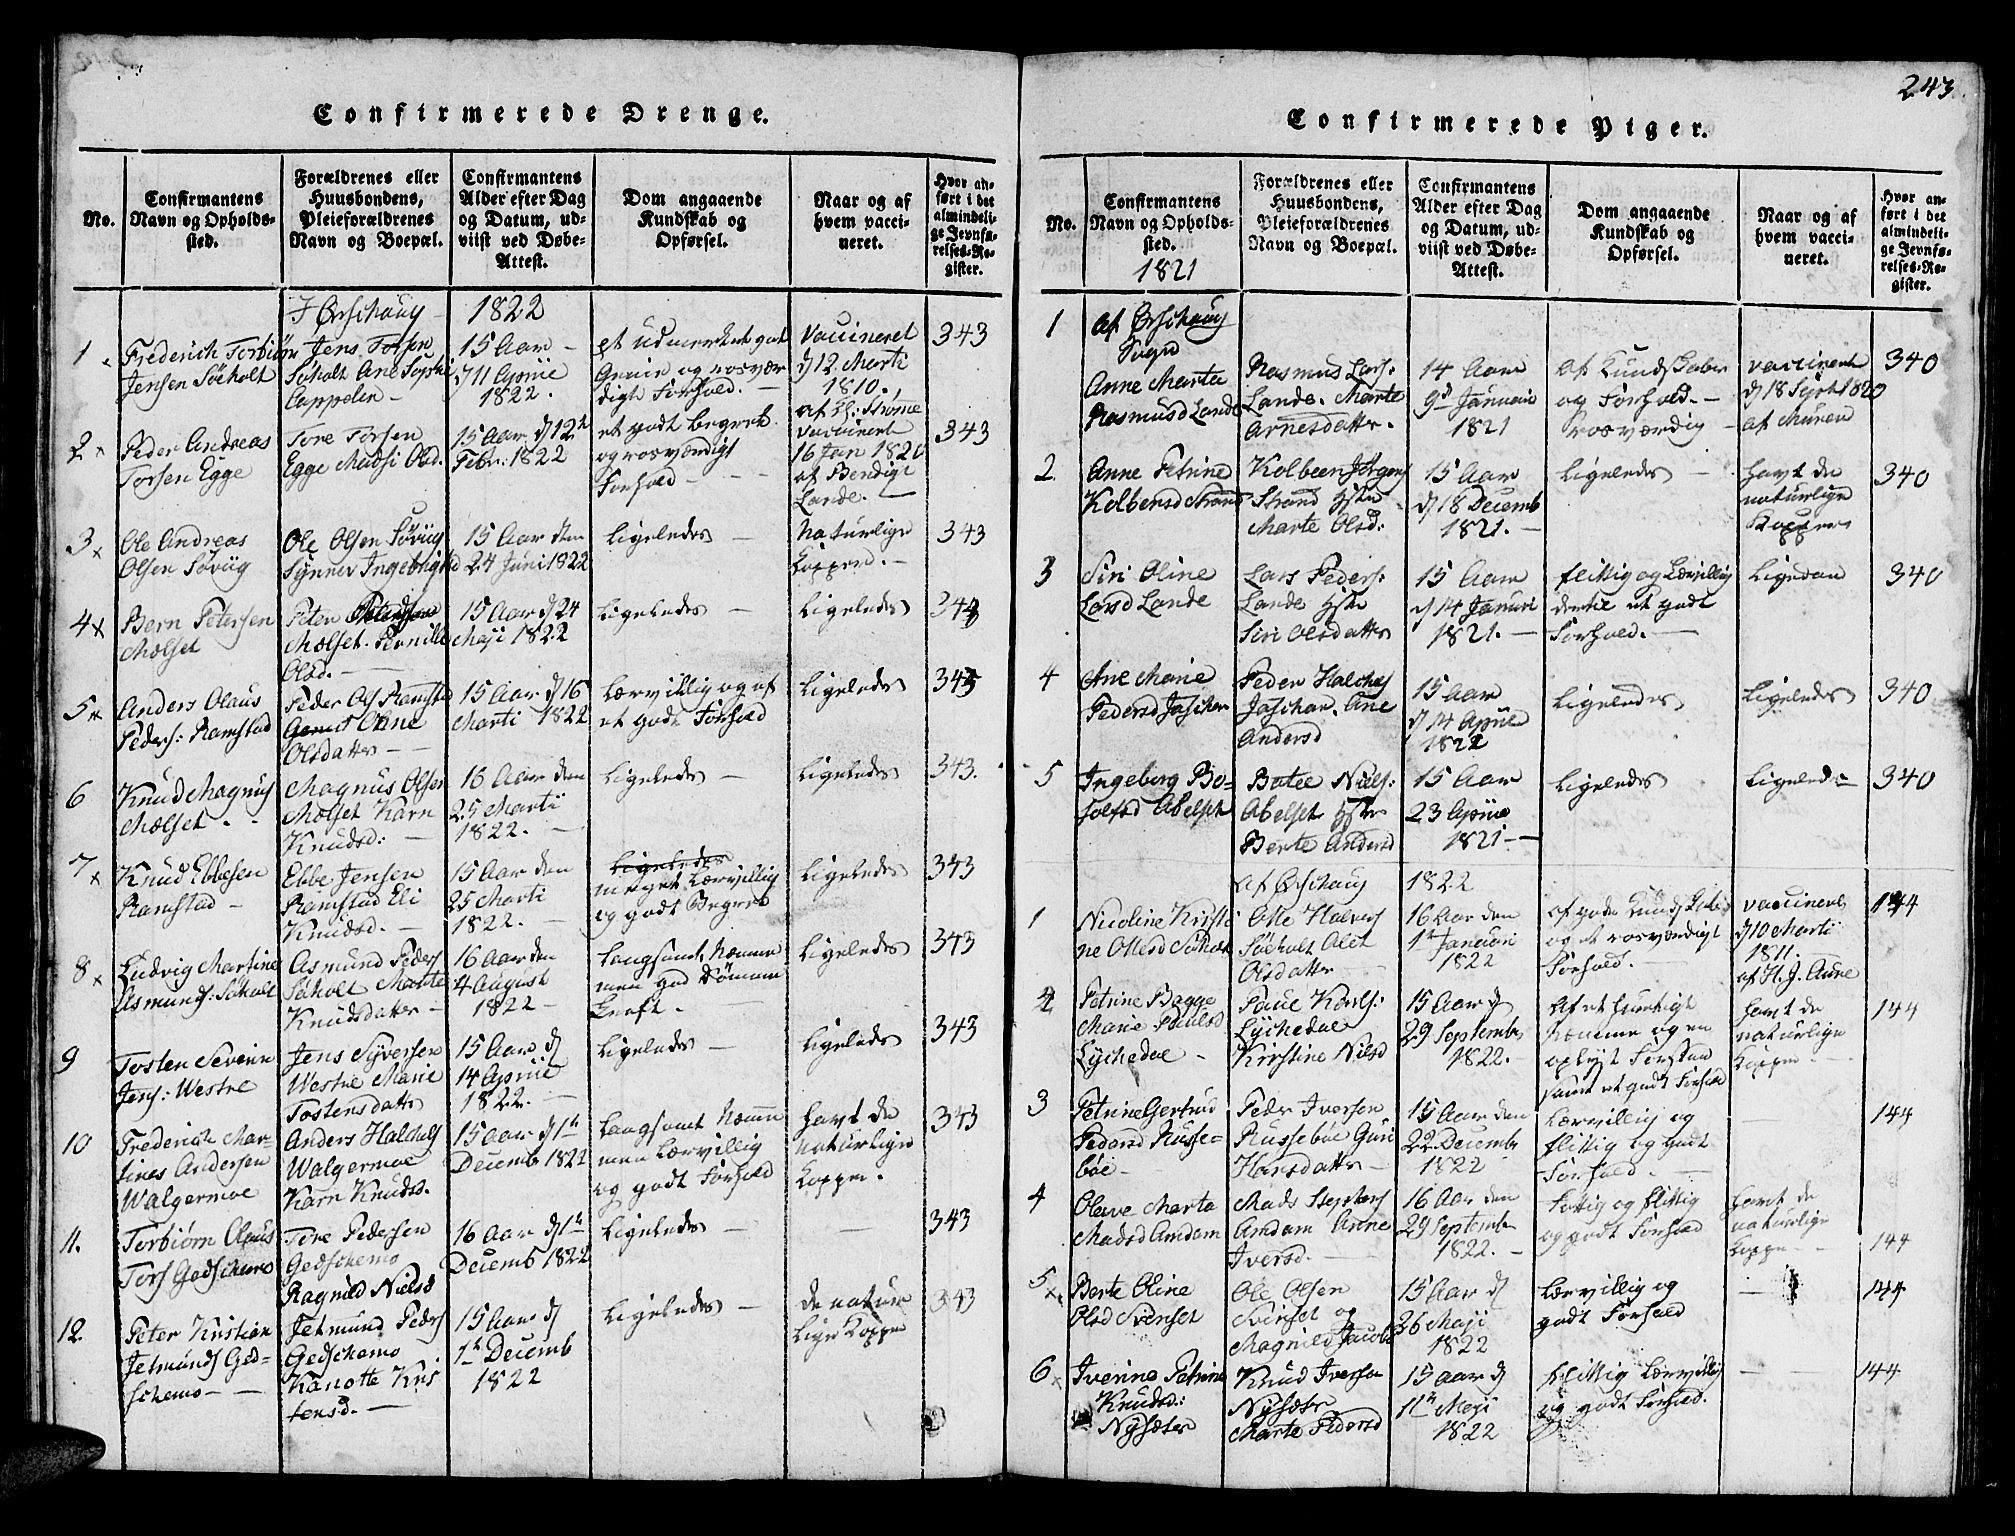 243.
Confirmerede Drenge.
No.
Confirmantens
Navn og Opholds-
sted.
Forældrenes eller
Huusbondens,
Pleieforældrenes
Navn og Boepæl.
Confirmantens
Alder efter Dag
og Datum, ud-
viist ved Døbe-
Attest.
Dom angaaende
Kundskab og
Opførsel.
Naar og af
hvem vacci-
neret.
Hvor an-
ført i det
almindeli-
ge Jevnfø-
relses-Re-
gister.
I Ørschaug
1822
1
Frederich Torbiørn
Jensen Søeholt
Jens Torsen
Søholt Ane Sophi
Cappelen
15 Aar
d 11 April
1822.
et udmerket godt
Geniie og rosvær
digt Forhold.
Vaccineret
d 12 Marti
1810.
af Strøme
343
2
Peder Andreas
Torsen Egge
Tore Torsen
Egge Madsi Olsd.
15 Aar d 12
Febr. 1822
et godt begreb
og rosværdigt
Forhold
vaccineret
16 Jan 1820
af Bendigt
Lande.
343
3
Ole Andreas
Olsen Søviig
Ole Olsen Søviig
Synnev Ingebrigtsd
15 Aar den
24 Juni 1822
Ligeledes
Naturlige
Kopper.
343
4
Bern Petersen
Mælset
Peter Petersen
Mælset Pernille
Olsd.
15 Aar d 24
Maji 1822
Ligeledes
Ligeledes
343
5
Anders Olaus
Peders: Ramstad
Peder Ols Ramstad
Oline
Olsdatter
15 Aar d 16
Marti 1822
Lærvillig og af
et godt Forhold
Ligeledes
343
6
Knud Magnus
Mælset
Magnus Olsen
Mælset Karn
Knudsd:
16 Aar den
25 Martii
1822.
Ligeledes
Ligeledes
343.
7
Knud Ebbesen
Ramstad
Ebbe Jensen
Ramstad Eli
Knudsd.
15 Aar den
25 Marti
1822.
Ligeledes
meget Lærvillig
og godt Begreb
Ligeledes
343
8
Ludvig Martinus
Asmunds: Søholt
Asmund Peders
Søholt Marte
Knudsdatter
16 Aar den
4 August
1822
Langsomt Nemme
men god Dømme
Kraft.
Ligeledes
343
9
Tosten Severin
Jens: Westre
Jens Syversen
Westre Marie
Tostensdatter
15 Aar d
14 April
1822.
Ligeledes
Ligeledes
343
10
Frederich Mar-
tines Andersen
Walgermoe
Anders Halchels
Walgermoe
Karn Knuds.
15 Aar d 1
Decemb 1822
Langsomt Nemme
men Lærvillig
og godt Forhold
havt de
naturlige
Kopper.
343
11.
Torbiørn Olaus
Tors Gedschemo
Tore Pedersen
Gedschemo
Ragnild Nielsd
16 Aar d 1
Decemb 1822
Ligeledes
343
12.
Peter Kristian
Jetmunds Ged-
schemo
Jetmund Peders
Gedschemo
Kanotte Kris
tensd.
15 Aar d
1 Decemb
1822
Ligeledes
de natur
lige Kopper
343
Confirmerede Piger.
No.
Confirmantens
Navn og Opholds-
sted.
1821
Forældrenes eller
Huusbondens,
Pleieforældrenes
Navn og Boepæl.
Confirmantens
Alder efter Dag
og Datum, ud-
viist ved Døbe-
Attest.
Dom angaaende
Kundskab og
Opførsel.
Naar og af
hvem vacci-
neret.
Hvor an-
ført i det
almindeli-
ge Jevnfø-
relses-Re-
gister.
1
af Ørschaug
Sogn
Anne Marta
Rasmusd Lande
Rasmus Lars:
Lande. Marte
Arnesdatter.
14 Aar
9 Januari
1821
af Kundskaber
og Forhold.
rosværdig
vaccineret
d 18 Sept 1820
af Muren
340
2
Anne Petrine
Kolbensd Strand
Kolbeen Jørgens
Strand Hstr
Marte Olsd:
15 Aar
d 18 Decemb
1821.
Ligeledes
havt de
naturlige
Kopper
340
3
Siri Oline
Larsd Lande
Lars Peders:
Lande Hstr
Siri Olsdatter
15 Aar
d 14 Januari
1821.
flittig og Lærvillig
dertil et godt
Forhold.
Ligedan
340
4
Ane Marie
Pedersd Jaschar
Peder Halches
Jaschar. Ane
Andersd
15 Aar
d 14 April
1821
Ligeledes
Ligeledes
340
5
Ingeborg Bo-
Abelset
Niels:
Abelset Hstr
Berte Andersd
15 Aar
23 April
1821
Ligeledes
Ligeledes
340
af Ørschaug
1822
1
Nicoline Kristi
ne Ottesd Søholt
Otte Halvors
Søeholt Olit
Olsdatter
16 Aar den
1 Januari
1822
af gode Kundskaber
og et rosværdigt
Forhold.
vaccineret
d 10 Marti
1811.
af H. J. Aure
144
2
Petrine Bagge
Marie Paulsd
Lychedal
Paul Karls:
Lychedal
Kirstine Nielsd
15 Aar d
29 Septembr
1822.
Af et hurtigt
Nemme og en
oplyst Forstan
samt et godt Forhold
havt de
naturlige
Kopper
144
3
Petrine Gertrud
Pedersd Russe-
bøe
Peder Iversen
Russebøe Guri
Hansdatter
15 Aar den
22 Decemb
1822
Lærvillig og
flittig og godt
Forhold.
144
4
Olave Marta
Madsd Amdam
Mads
Amdam Anne
Iversd.
16 Aar den
29 Septembr
1822.
og flittig
og godt Forhold
havt de
naturlige
Kopper
144
5
Berte Oline
Olsd Svenset
Ole Olsen
Svenset og
Magnild Jacobs
15 Aar d
26 Maji
1822
Lærvillig og
godt Forhold
144
6
Iverine Petrine
Knudsd:
Nysæter
Knud Iversen
Nysæter
Marte Pedersd
15 Aar d
11 Maji
1822
flittig Lærvillig
og godt Forhold.
144